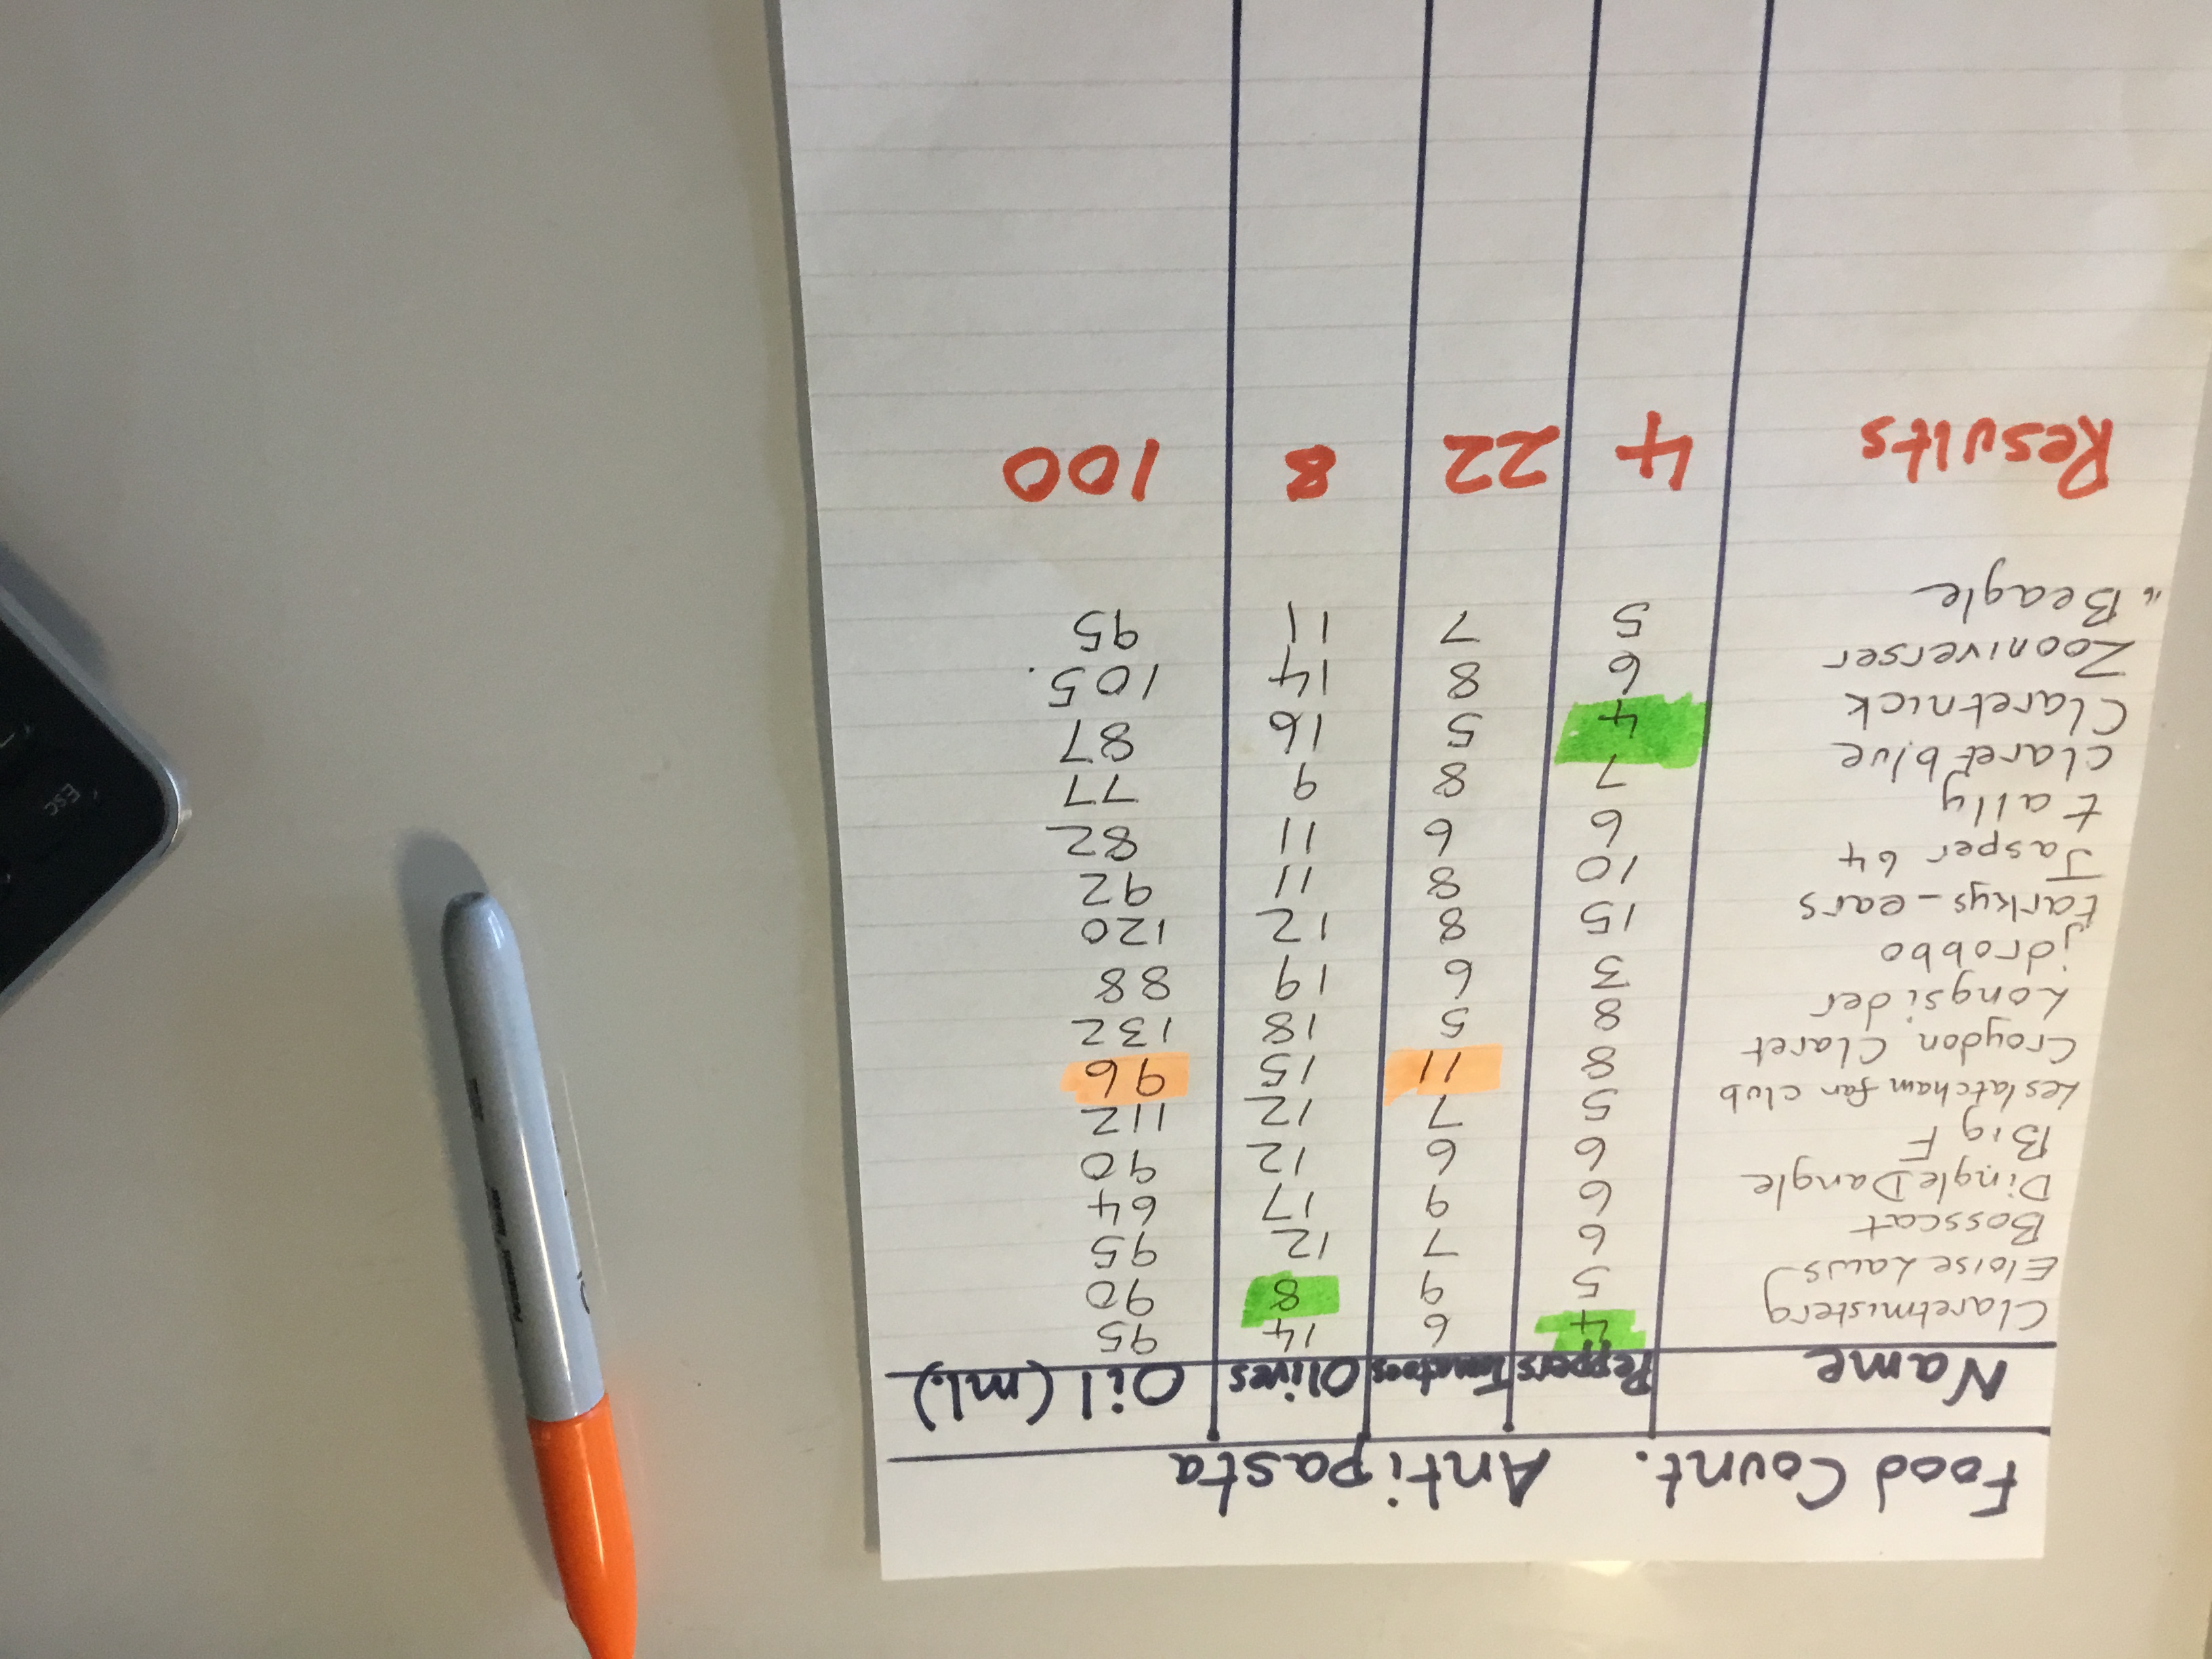 Food Count. Antipasta
Name Peppers Tomatoes Olives Oil (ml.)
Claretmisterg 4 6 14 95
Eloise Laws 5 9 8 90
Bosscat 6 7 12 95
DingleDangle 6 9 17 64
Big F 6 6 12 90
Leslatcham fan club 5 7 12 112
Croydon Claret 8 11 15 96
Longsider 8 5 18 132
jdrobbo 3 6 19 88
Tarkys-ears 15 8 12 120
Jasper 64 10 8 11 92
tally 6 6 11 82
claretblue 7 8 9 77
Claretnick 4 5 16 87
Zooniverser 6 8 14 105.
"Beagle 5 7 11 95
Results 4 22 8 100
esc
Permanent Marker